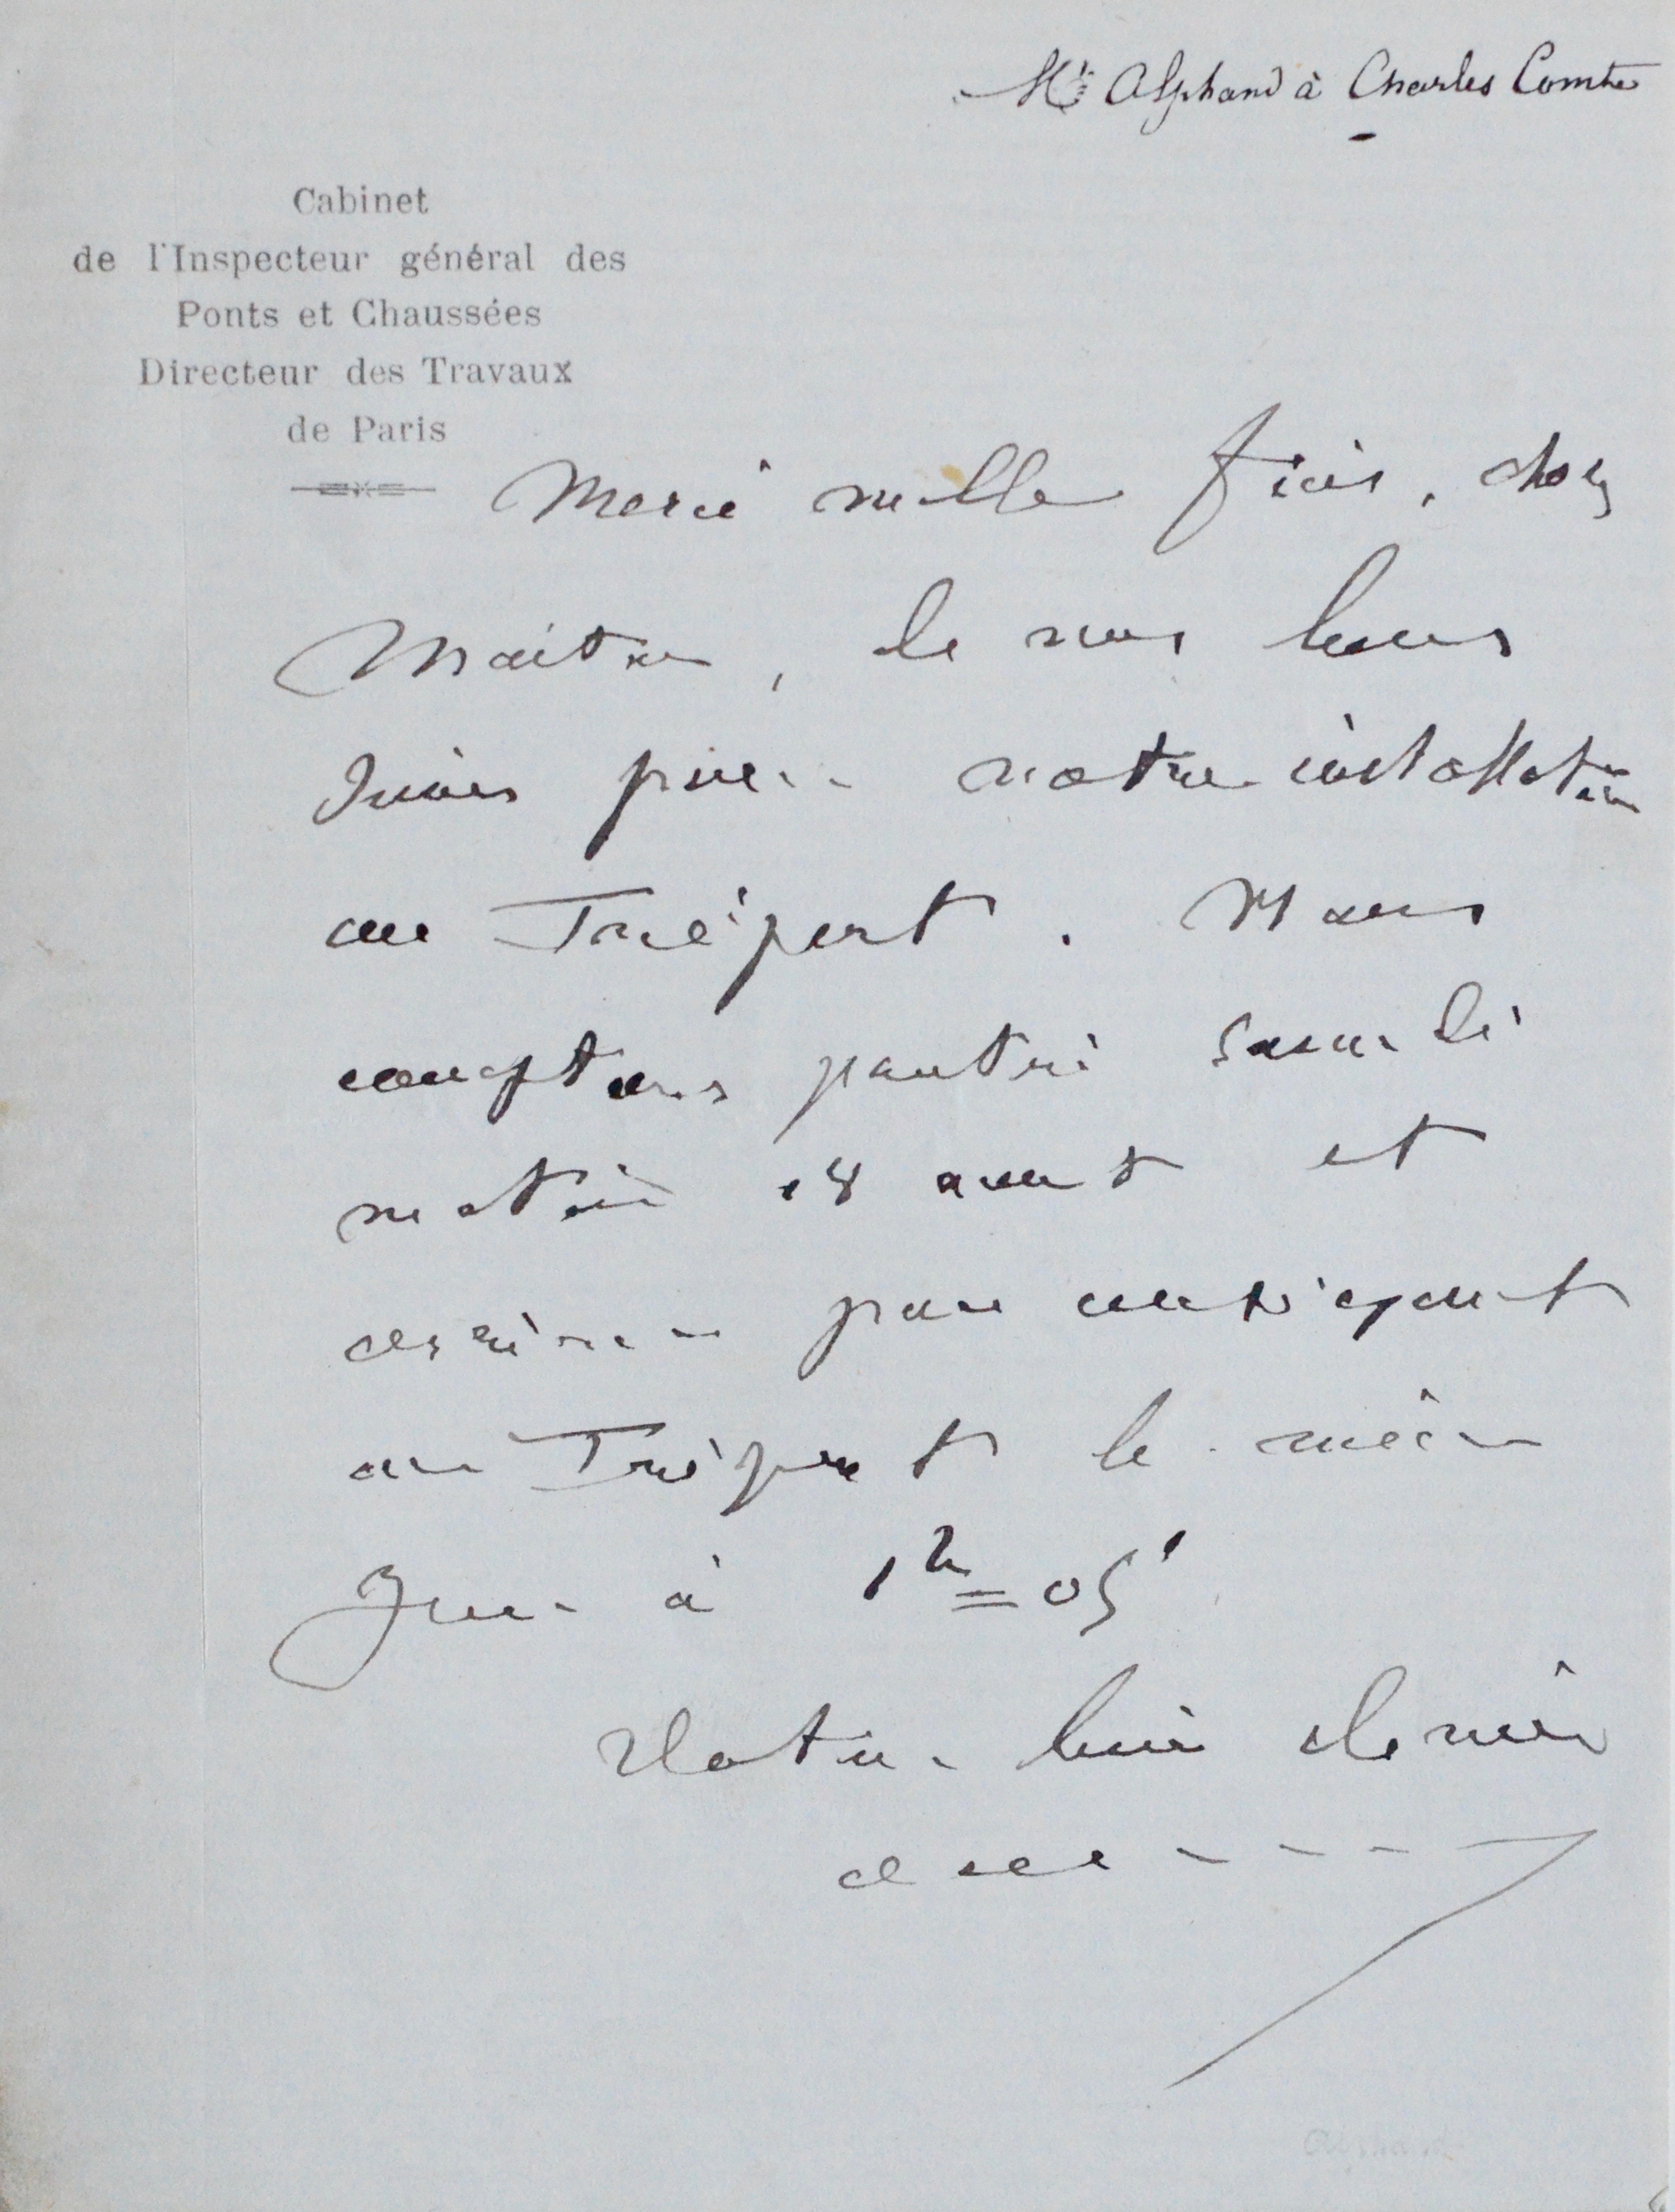 Mr Alphand à Charles Comte
Cabinet
de l'Inspecteur général des
Ponts et Chaussées
Directeur des Travaux
de Paris
Merci mille fois, cher
Maitre, de vos bons
soins pour notre installation
au Tréport. Nous
comptons partir samedi
matin 18 aout et
arriver par conséquent
au Tréport le même
jour à 1h 05'
Votre bien dévoué
Alphand